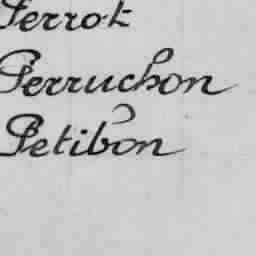 Perrot
Perruchon
Petibon